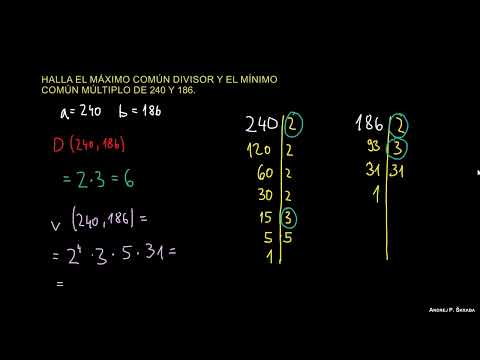 HALLA EL MÁXIMO COMÚN DIVISOR Y EL MÍNIMO
COMÚN MÚLTIPLO DE 240 Y 186.
a=240 b=186
D (240,186)
= 2·3 = 6
v (240,186) =
= 2⁴·3·5·31 =
=
240 2
120 2
60 2
30 2
15 3
5 5
1
186 2
93 3
31 31
1
ANDREJ P. ŠKRABA